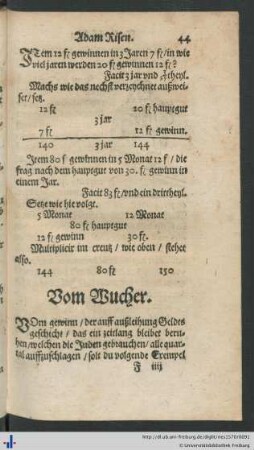 Adam Risen. 44
ITem 12 fl gewinnen in 3 Jaren 7 fl/in wie
viel jaren werden 20 fl gewinnen 12 fl?
Facit 3 jar vnd theyl.
Machs wie das nechst verzeychnet außwei-
set/setz.
12 fl 20 fl hauptgut
3 jar
7 fl 12 fl gewinn.
140 3 jar 144
Item 80 f gewinnen in 5 Monat 12 f/ die
frag nach dem hauptgut von 30. fl gewinn in
einem Jar.
Facit 83 fl/vnd ein drittheyl.
Setze wie hie volgt.
5 Monat 12 Monat
80 fl hauptgut
12 fl gewinn 30 fl.
Multiplicir im creutz/ wie oben/ stehet
also.
144 80 fl 150
Vom Wucher.
VOm gewinn/ der auff außleihung Geldes
geschicht/ das ein zeitlang bleibet beru-
hen/welchen die Juden gebrauchen/ alle quar-
tal auffzuschlagen/ solt du volgende Exempel
F iiij
Universitätsbibliothek Freiburg